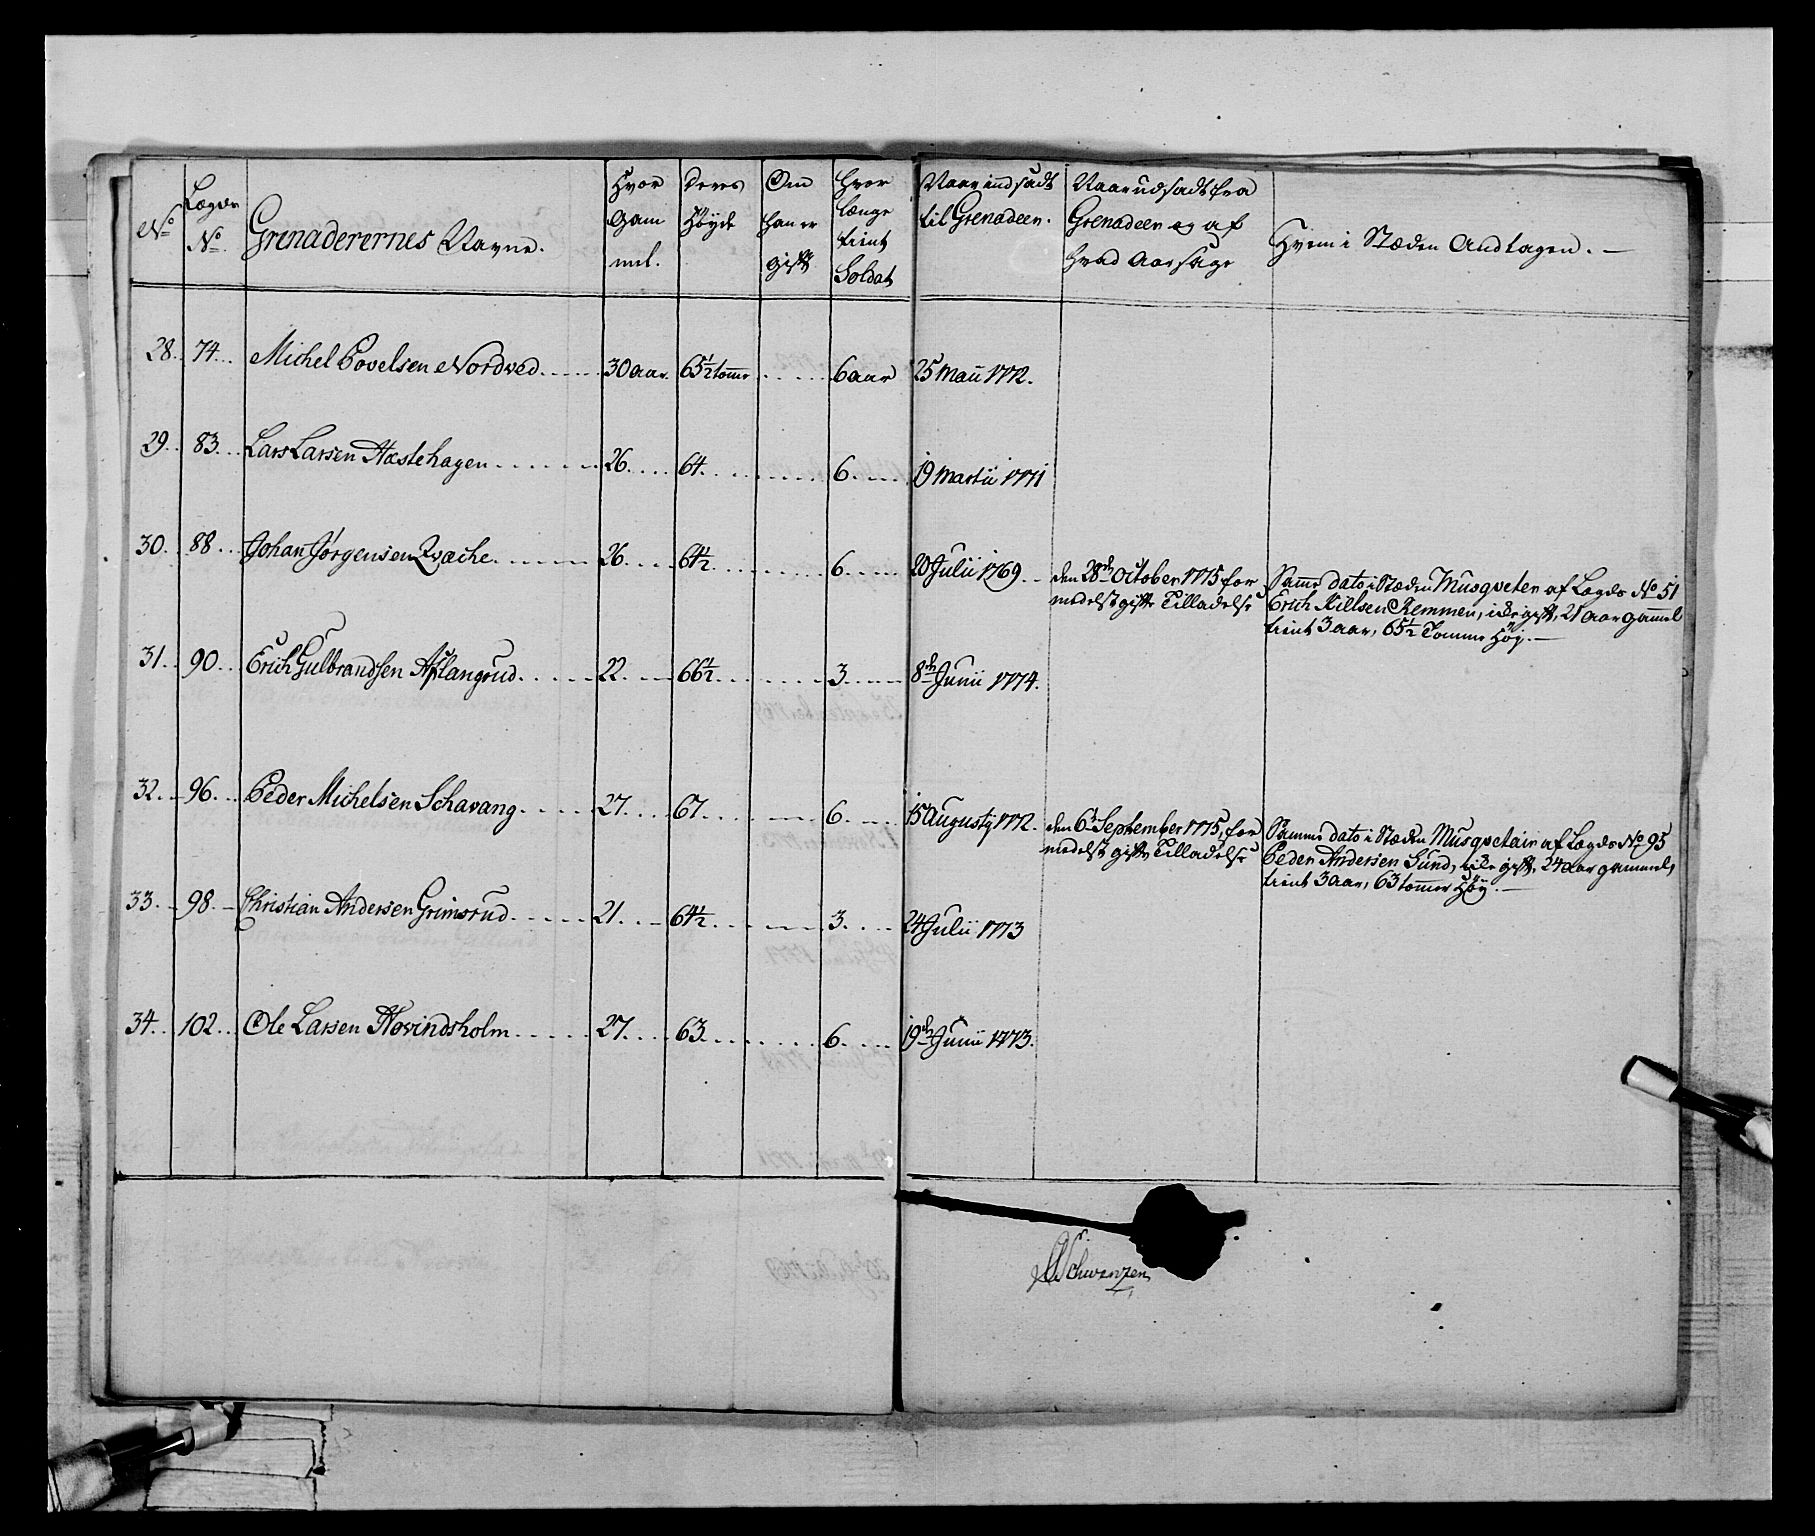 No
Lægds No
Grenaderernes Navne.
Hvor Gam mel.
Deres Høyde
Om han er gift
Hvor længe tient Soldat
Naar indsadt til Grenadeer.
Naar udsadt fra Grenadeer og af hvad Aarsage
Hvem i Stæden Andtagen. —
28. 74. Michel Povelsen Nordved 30 aar. 65½ tomer 6 aar 25 Maii 1772.
29. 83. Lars Larsen Hæstehagen 26. 64. 6. 19 Martii 1771
30. 88. Johan Jørgensen Qvæche 26. 64½ 6. 20 Julii 1769. den 28de October 1775 for
medelst gifte Tilladelse
Samme dato i Stæden Musqveteer af Lægds No 51
Erich Nillsen Remmen, icke gift, 21 aar gammel
tient 3 aar, 65½ Tomme høy. —
31. 90. Erich Gulbrandsen Aslangrud 22. 66½ 3. 8de Junii 1774.
32. 96. Peder Michelsen Schavang 27. 67. 6. 15 Augusty 1772. den 6te September 1775, for
medelst gifte Tilladelse
Samme dato i Stæden Musqvetair af Lægds No 95
Peder Andersen Sund, icke gift, 24 aar gammel,
tient 3 aar, 63 tommer høy. —
33. 98. Christian Andersen Grimsrud 21. 64½ 3. 24 Julii 1773
34. 102. Ole Larsen Hovindsholm 27. 63. 6. 19de Junii 1773.
Schwenzen